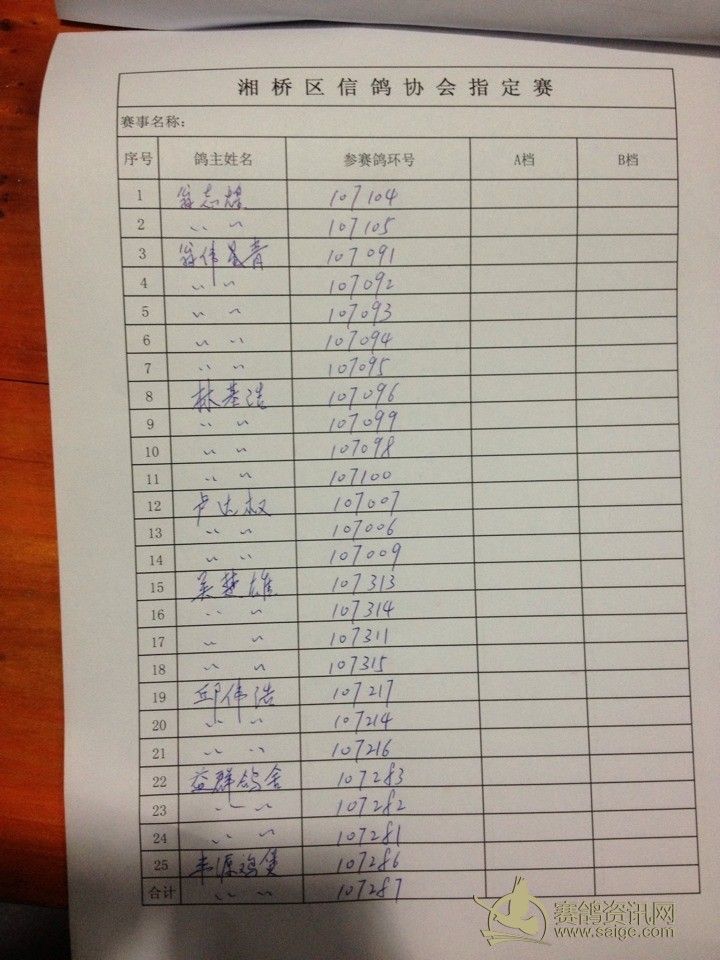 湘桥区信鸽协会指定赛
赛事名称：
序号 鸽主姓名 参赛鸽环号 A档 B档
1 翁志雄 107104
2 〃 〃 107105
3 翁伟 青 107091
4 〃 〃 107092
5 〃 〃 107093
6 〃 〃 107094
7 〃 〃 107095
8 林基浩 107096
9 〃 〃 107099
10 〃 〃 107098
11 〃 〃 107100
12 卢达权 107007
13 〃 〃 107006
14 〃 〃 107009
15 吴楚雄 107313
16 〃 〃 107314
17 〃 〃 107311
18 〃 〃 107315
19 邱伟浩 107217
20 〃 〃 107214
21 〃 〃 107216
22 益群鸽舍 107283
23 〃 〃 107282
24 〃 〃 107281
25 源鸡煲 107286
合计 〃 〃 107287
赛鸽资讯网
www.saige.com